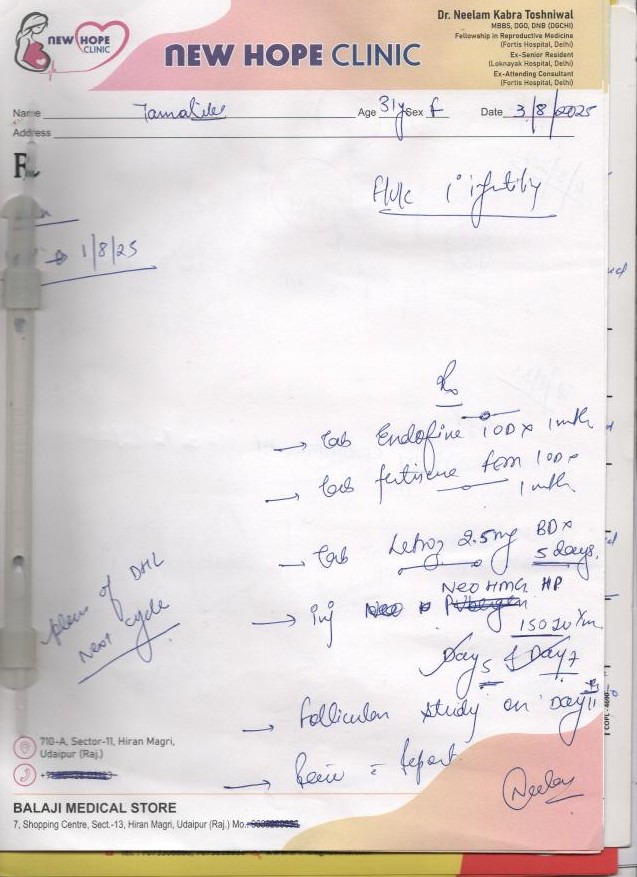 NEW HOPE
CLINIC
NEW HOPE CLINIC
Dr. Neelam Kabra Toshniwal
MBBS, DGO, DNB (DGCHI)
Fellowship in Reproductive Medicine
(Fortis Hospital, Delhi)
Ex-Senior Resident
(Loknayak Hospital, Delhi)
Ex-Attending Consultant
(Fortis Hospital, Delhi)
Name Age 31y Sex F Date 3/8/2025
Address
1° 
1/8/25
→ Tab Endofine 1 OD x 1 mth
→ Tab fertisure fem 1 OD x
1 mth.
→ Tab Letroz 2.5mg BD x
5 days.
NEO HMG HP
→ inj 150 IU I/m
Day 5 & Day 7
plan of DHL
next cycle
→ Follicular study on Day 11
→ Report
Neelam
710-A, Sector-11, Hiran Magri,
Udaipur (Raj.)
BALAJI MEDICAL STORE
7, Shopping Centre, Sect.-13, Hiran Magri, Udaipur (Raj.) Mo.: